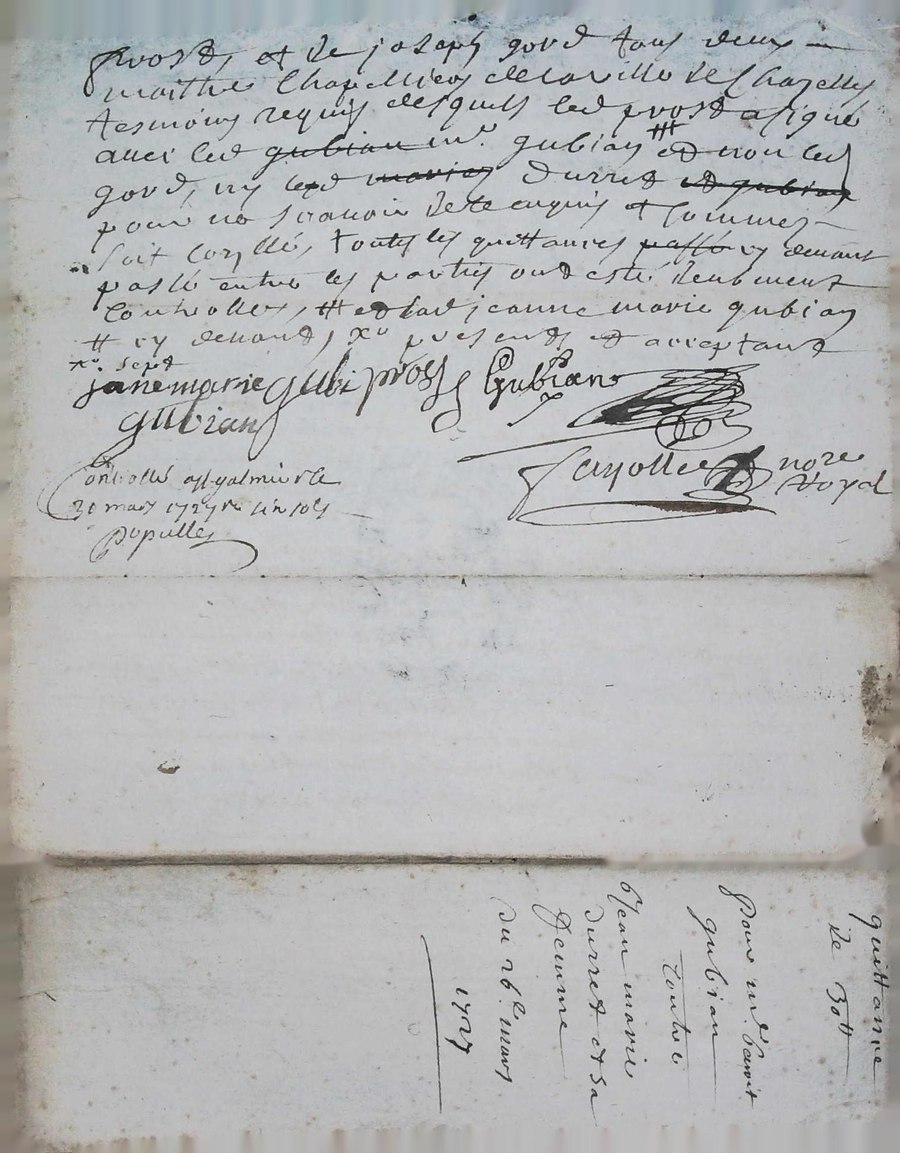 prost, et de joseph gord tous deux
maitres Chapelliers de la ville de Chazelles
tesmoins requis desquels led prost a signé
avec led gubian mr. gubian # et non led
gord, ny led marie durret et gubian
pour ne scavoir de ce enquis et sommes
soit Conllé, toutes les quittances passé cy devant
passé entre les parties ont esté deuement
Controllees, # et lad jeanne marie gubian
# cy devant, xo presents et acceptant
xo. sept
janemarie gubi prost Gubian
gubian
Controllé a St galmier le
30 mars 1727 R six sols
Pupulles
Cayollet nore
Royal
quittance
de 30tt
pour mr benoit
gubian
Contre
Jean marie
durret et sa
femme
du 26e. mars
1727